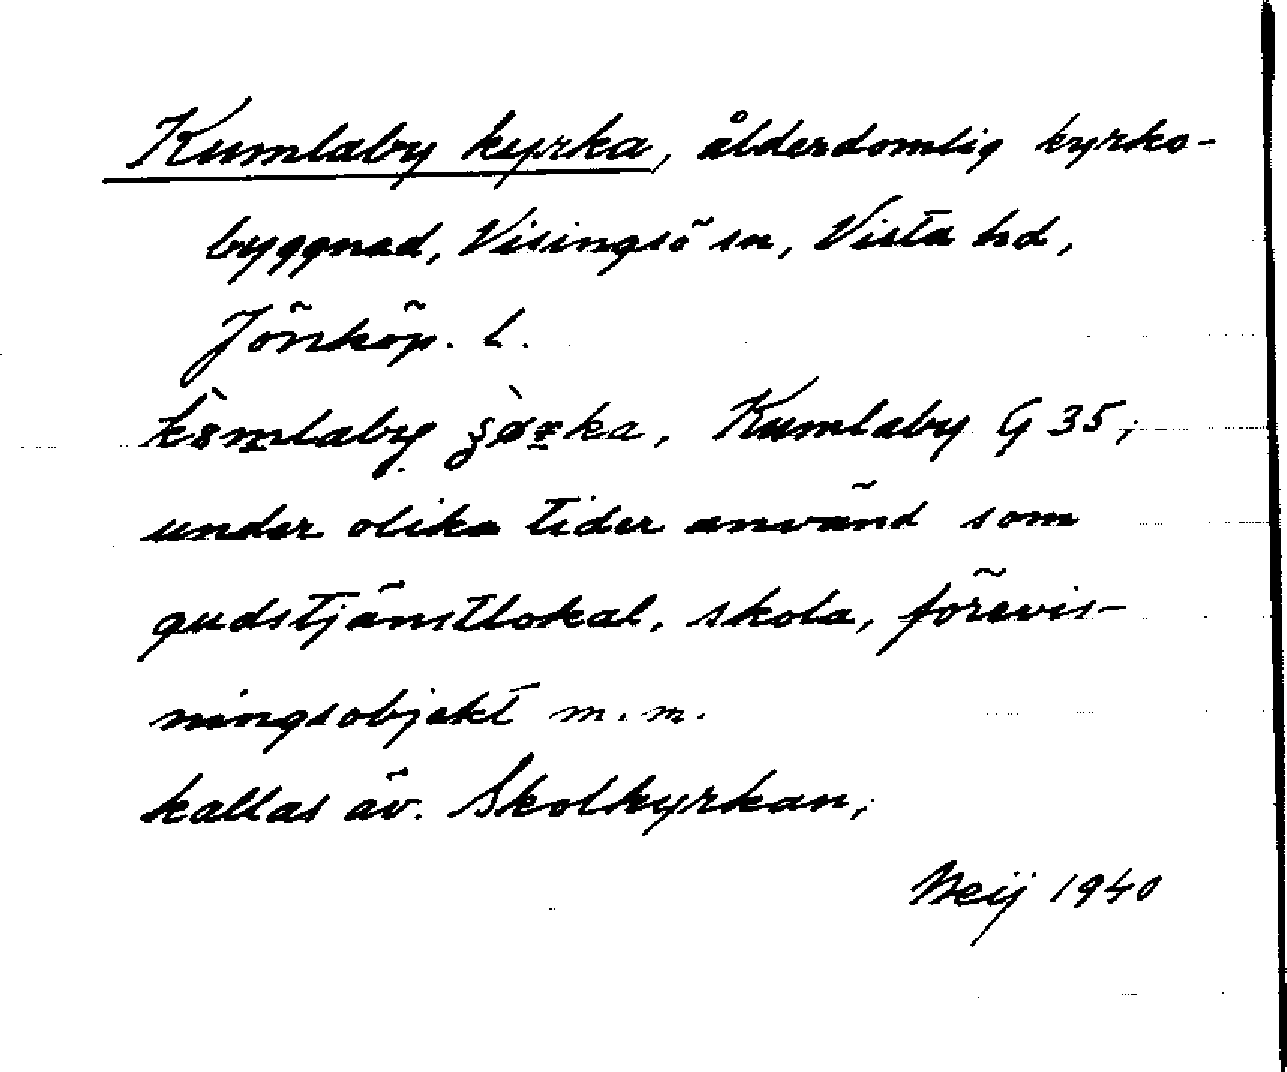 Kumlaby kyrka, ålderdomlig kyrko-
byggnad, Visingsö sn, Vista hd,
Jönköp. l.
Kumlaby G 35,
under olika tider använd som
gudstjänstlokal, skola, förevis-
ningsobjekt m.m.
kallas äv. Skolkyrkan,
Meij 1940